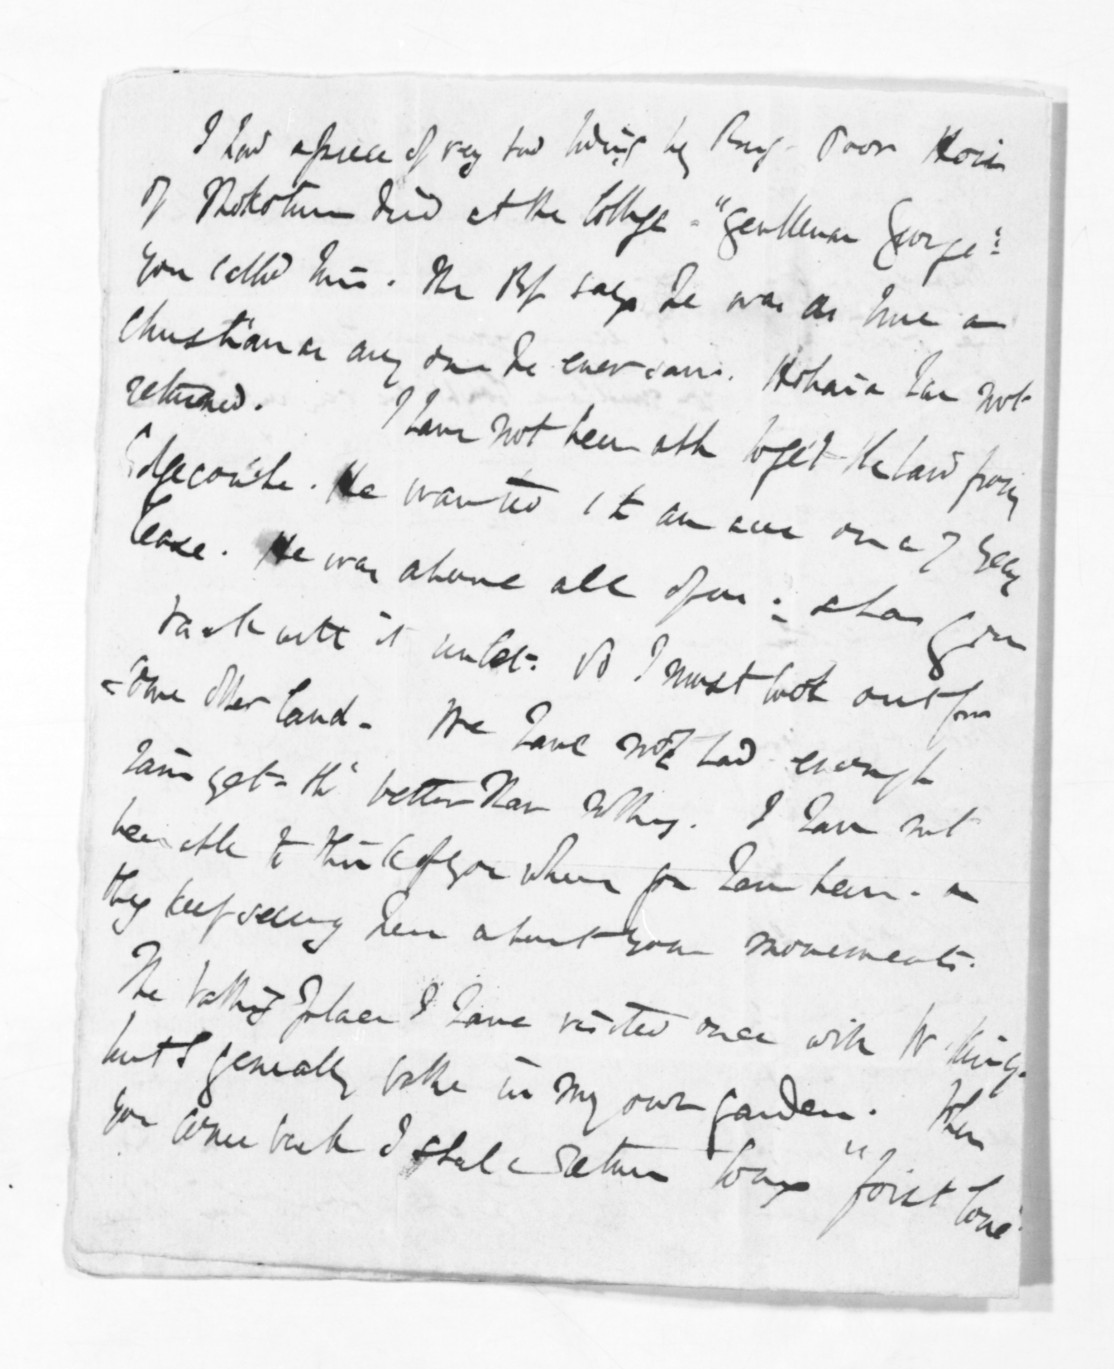 I had a piece of very sad tidings by Brig. Poor Hori
of Mokotuna died at the College - "gentleman George"
you called him. The Bp says he was as true a
Christian as any one he ever saw. Hohaia has not
returned. I have not been able to get the land from
Edgecombe. He wanted an acre on a 7 years
lease. He was above all of our : & has gone
back with it unlet. So I must look out for
some other land - We have not had enough
rain yet - tho' better than nothing. I have not
been able to think of you where you have been - as
they keep seeing here about your movements.
The bathing place I have visited once with W. King.
but I generally bathe in my own garden. When
you come back I shall return to my "foist love"